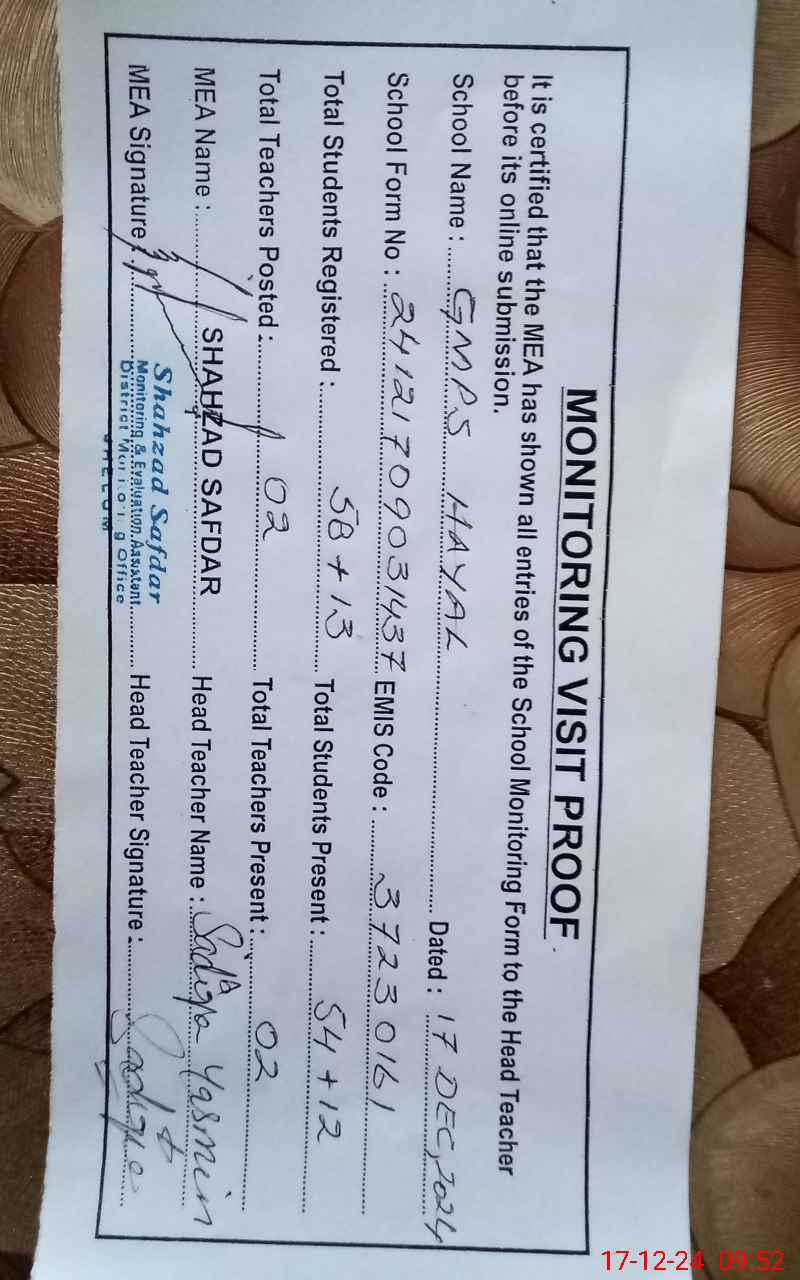 MONITORING VISIT PROOF
It is certified that the MEA has shown all entries of the School Monitoring Form to the Head Teacher
before its online submission.
School Name : GMPS HAYAL Dated : 17 DEC, 2024
School Form No : 24121709031437 EMIS Code : 37230161
Total Students Registered : 58 + 13 Total Students Present : 54 + 12
Total Teachers Posted : 02 Total Teachers Present : 02
MEA Name : SHAHZAD SAFDAR Head Teacher Name : Sadiqa Yasmin
MEA Signature : Head Teacher Signature : Sadiqa
Shahzad Safdar
Monitoring & Evaluation Assistant
District Monitoring Office
JHELUM
17-12-24 09:52